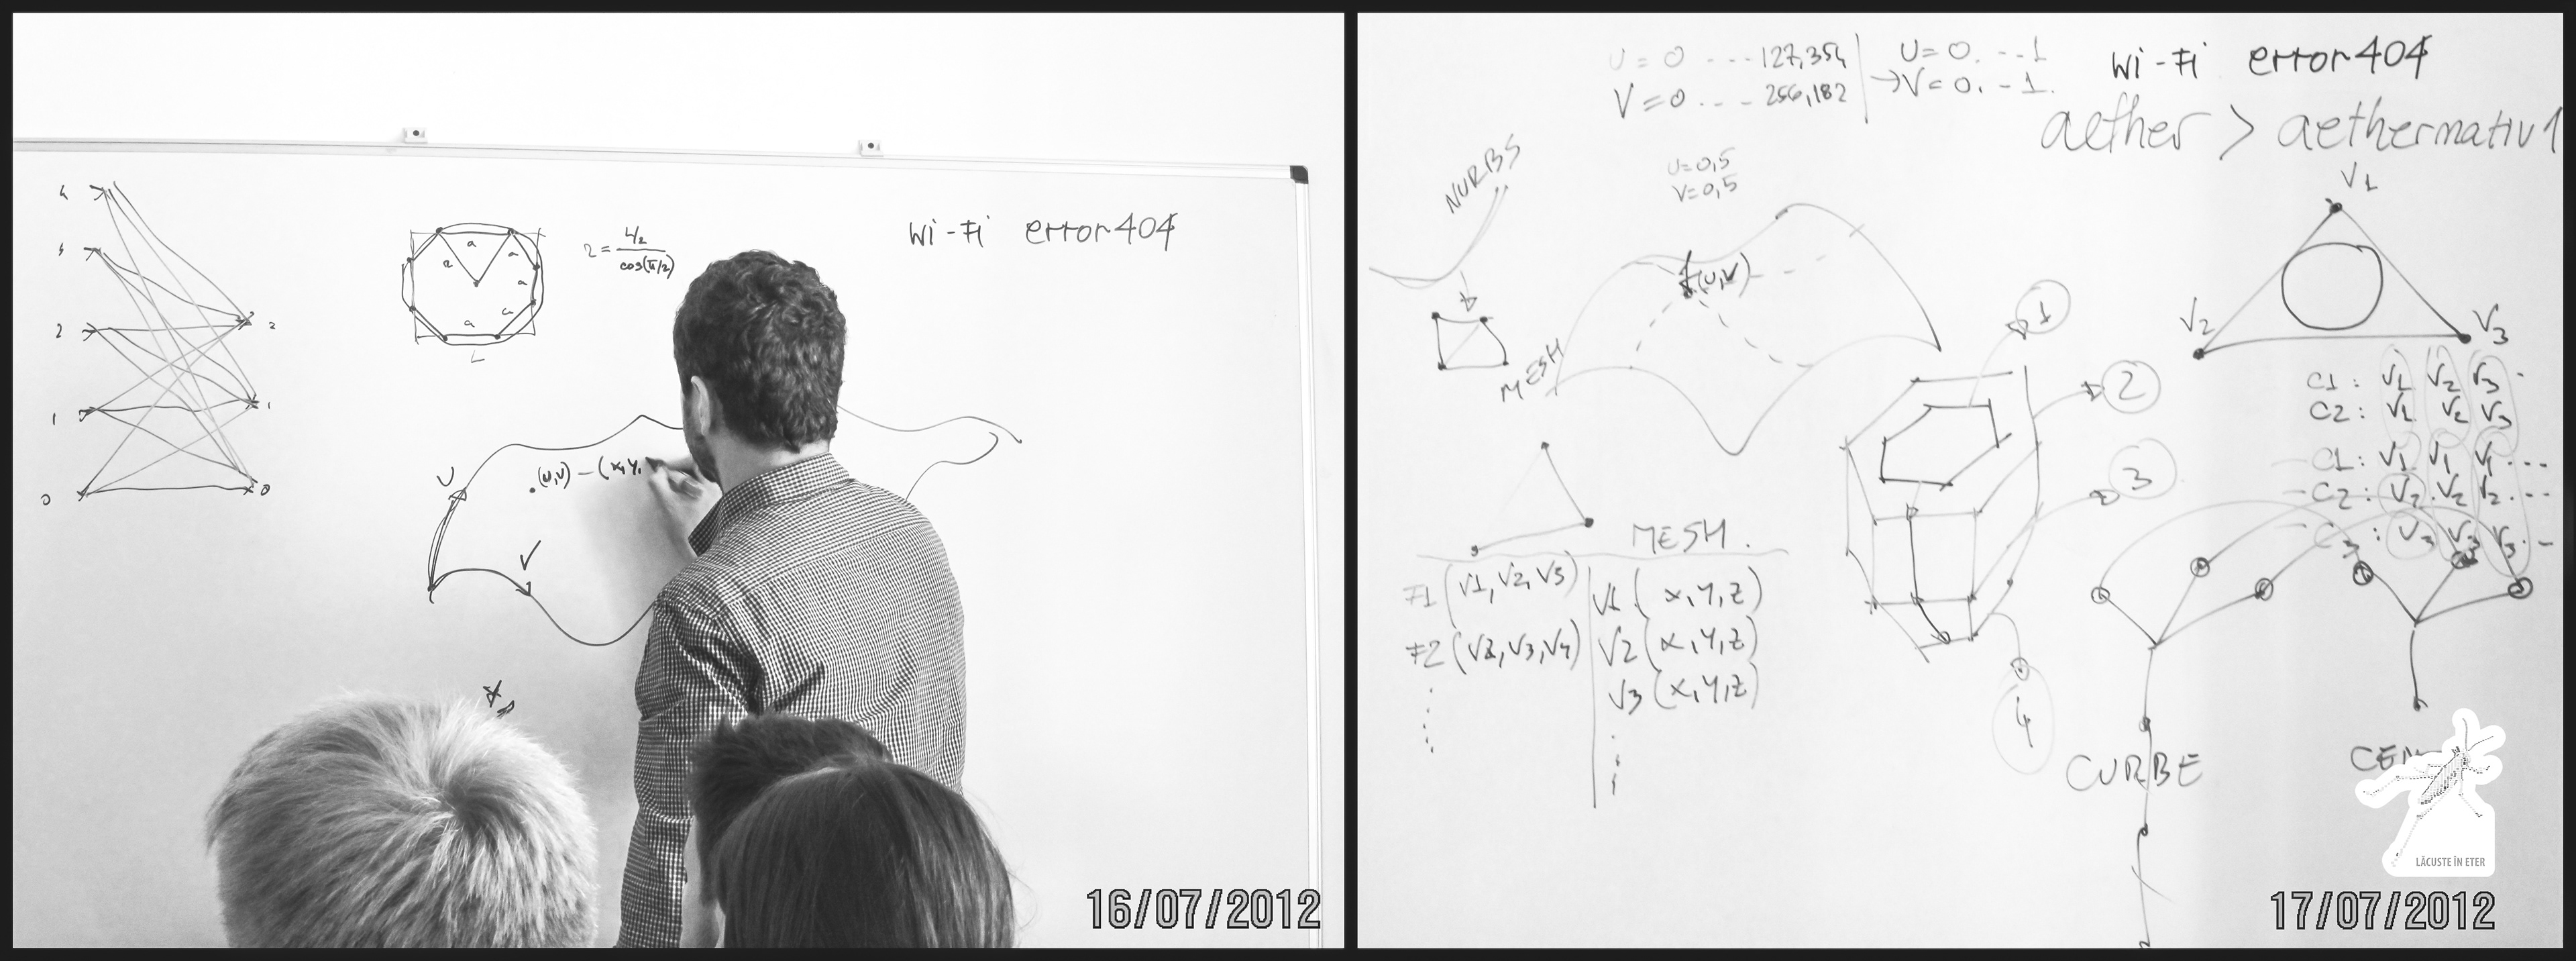 4
3
2
1
0
2
1
0
a
a
a
a
a
R
L
L/2
cos(π/2)
Wi-Fi error404
U
V
(u,v) – (x,y,
16/07/2012
U = 0 - - - 127,354
V = 0 - - - 256,182
U = 0. - - 1
→ V = 0. - 1.
Wi-Fi error404
aether > aethernativ1
NURBS
U=0,5
V=0,5
f(u,v)
MESH
1
2
3
4
V1
V2
V3
C1: V1 V2 V3 -
C2: V1 V2 V3
C1: V1 V1 V1 ...
C2: V2 . V2 V2 ...
C3: V3 V3 V3 . -
MESH.
F1 (V1, V2, V3)
F2 (V2, V3, V4)
V1 (x,y,z)
V2 (x,y,z)
V3 (x,y,z)
CURBE
LĂCUSTE ÎN ETER
17/07/2012